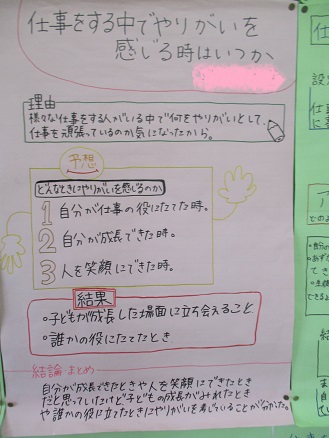 仕事をする中でやりがいを
感じる時はいつか
理由
様々な仕事をする人がいる中で何をやりがいとして、
仕事を頑張っているのか気になったから。
予想
どんなときにやりがいを感じるのか
1 自分が仕事の役にたてた時。
2 自分が成長できた時。
3 人を笑顔にできた時。
結果
・子どもが成長した場面に立ち会えること
・誰かの役にたてたとき
結論 まとめ
自分が成長できたときや人を笑顔にできたとき
だと思っていたけど子どもの成長がみれたとき
や誰かの役に立てたときにやりがいを
ていることが分かった。